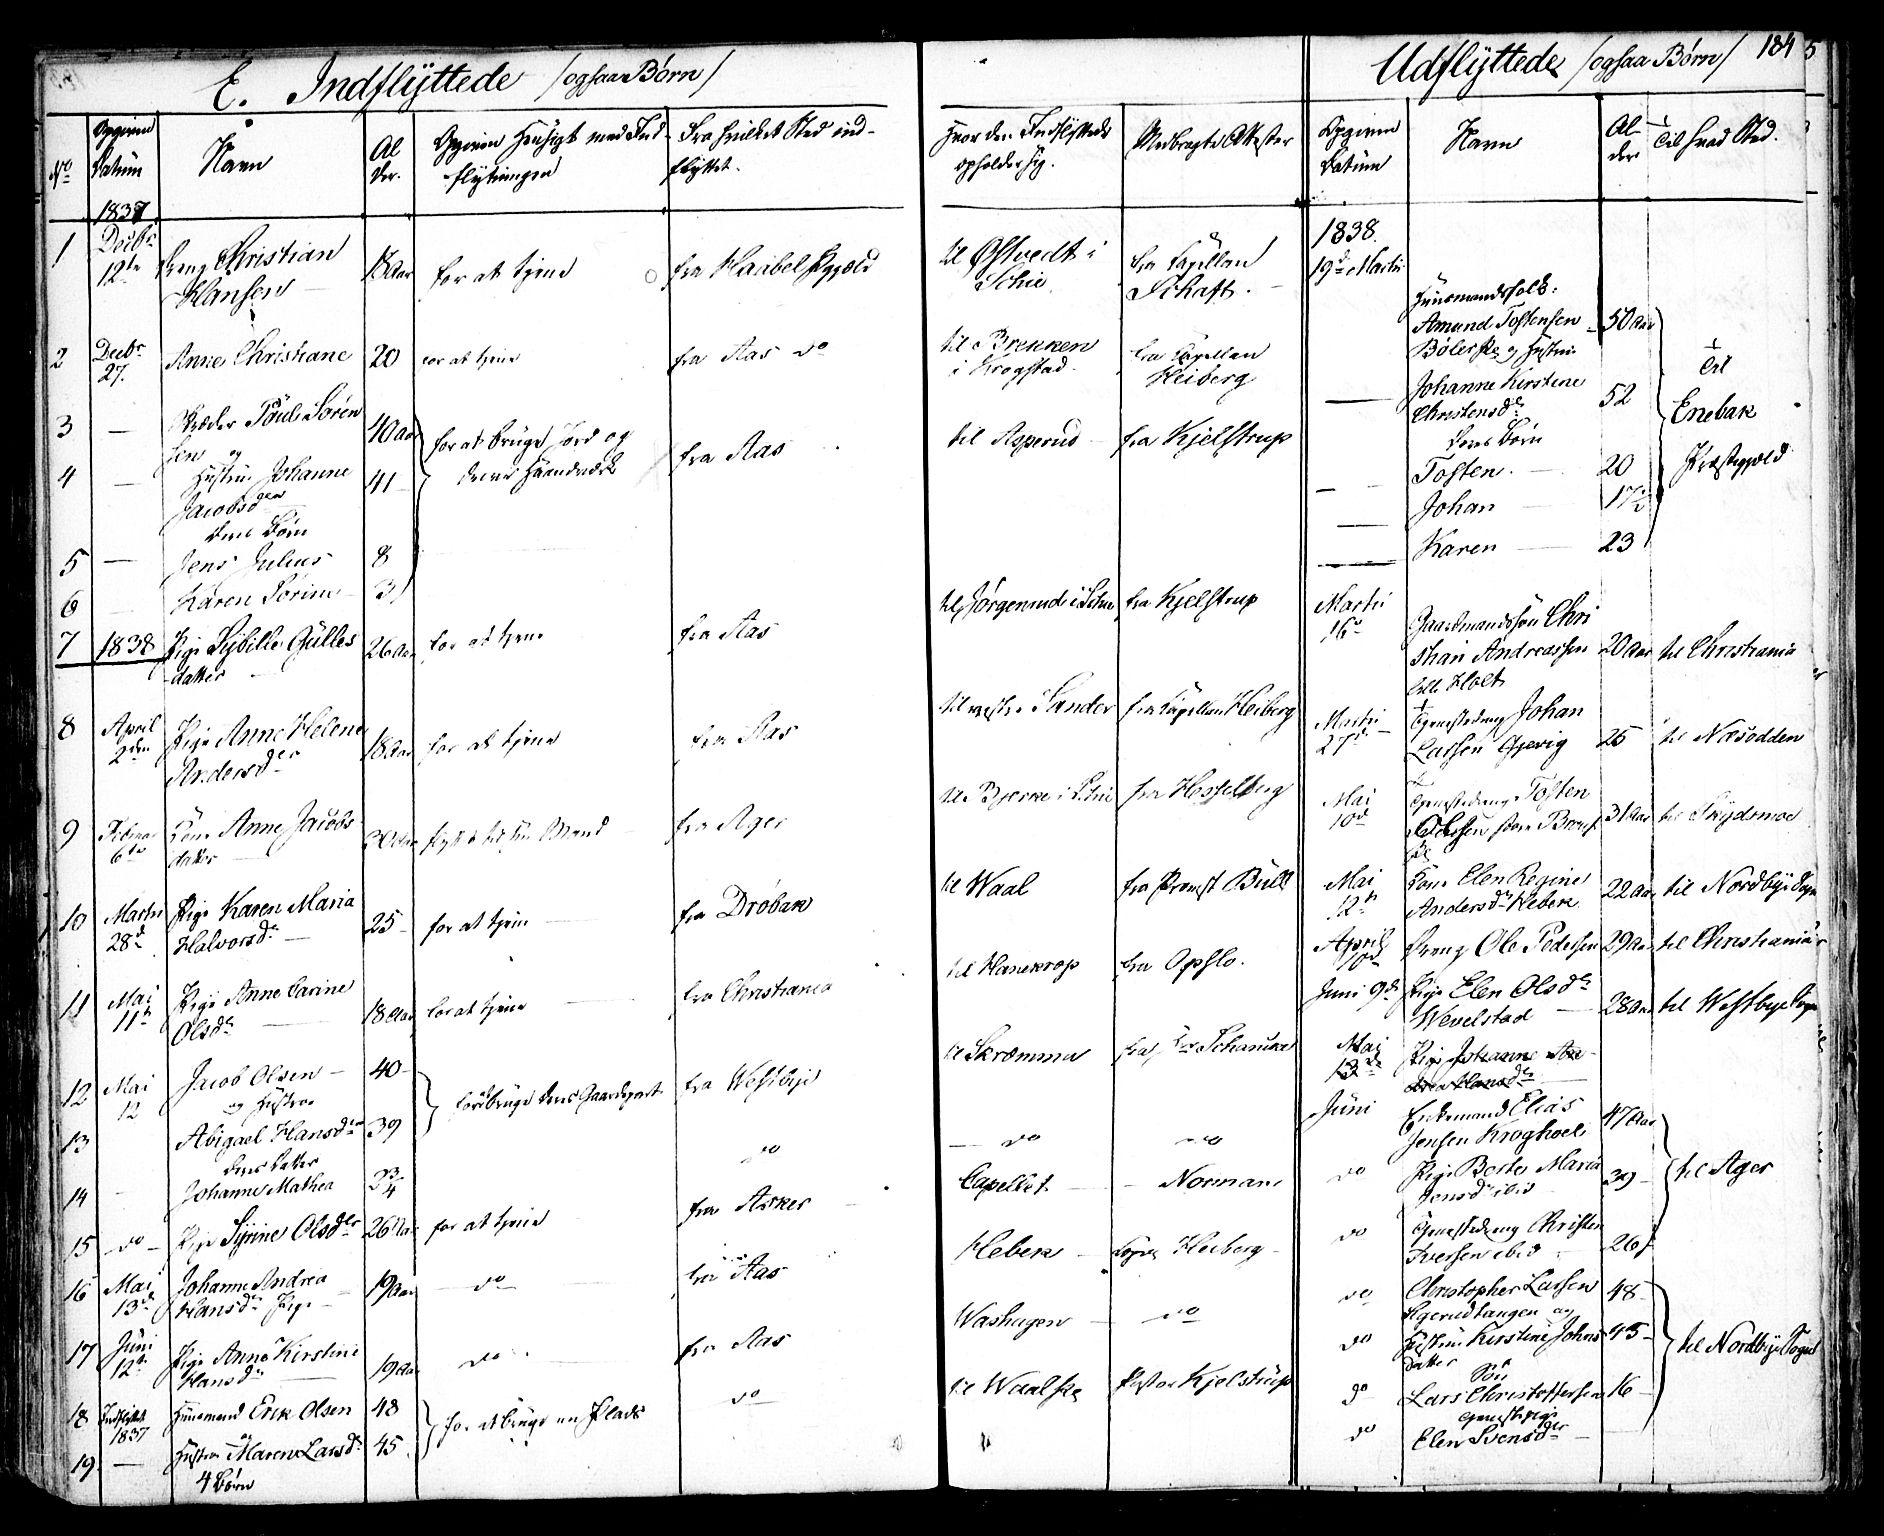 E. Indflyttede /ogsaa Børn/
No
Opgiven Datum
Navn
Alder.
Opgiven Hensigt med Indflytningen
Fra hvilket Sted indflyttet.
Hvor den Indflyttede opholder sig.
Medbragte Attester
1837
1 Decbr 12te Dreng Christian Hansen 18 Aar for at tjene fra Haabel til Østvedt i Schie fra Capellan Schaft.
2 Decbr 27. Anne Christiane 20 for at tjene fra Aas do til Brekken i Krogstad fra Capellan Heiberg
3 — Poul Søren 40 Aar for at bruge Jord og fra Aas til Asperud fra Kjelstrup
sen og
4 — Hustru Johanne 41 deres Haandværk
Jacobsd
deres Børn
5 — Jens Julius 8
6 — Karen Sørine 3
7 1838 Pige Sybille Gulles 26 Aar for at tjene fra Aas til Jørgenrud i Schie fra Kjelstrup
datter
8 April 2den Pige Anne Helene 18 Aar for at tjene fra Aas til vestre Sander fra Capellan Heiberg
Andersdr
9 Februar 6te Kone Anne Jacobs 30 Aar flytt til sin Mand fra Ager til Bjerke i Schie fra Hesselberg
datter
10 Martii 28d Pige Karen Maria 25 for at tjene fra Drøbak til Waal fra Provst Bull
Halvorsdr
11 Mai 11te Pige Anne Carine 18 Aar for at tjene fra Christiania til Hanekrop fra Opslo.
Olsdr
12 Mai 12 Jacob Olsen 40 for at bruge deres Gaardpart fra Westbye til Skræmma fra Schancke
og Hustru
13 Abigael Hansdr 39 do do do
deres Datter
14 Johanne Mathea 3/4
15 do Pige Syrine Olsdr 26 Aar for at tjene fra Asker Capellet Normann
16 Mai 13d Johanne Andrea 19 Aar do fra Aas Hebek Heiberg
Hansdr Pige
17 Juni 12te Pige Anne Kirstine 19 Aar do fra Aas Washagen do
Hansdr
18 Indflyttet 1837 Huusmand Erik Olsen 48 for at bruge en Plads do til Waalske Pastor Kjelstrup
19. — Hustru Maren Larsdr 45
4 Børn
Udflyttede /ogsaa Børn/ 184 5
Opgiven Datum
Navn
Alder
Til hvad Sted.
1838.
19de Martii
Huusmandsfolk:
Amund Tostensen 50 Aar
Bølerske og Hustru
— Johanne Kirstine 52
Christensdr
deres Børn
— Tosten 20
— Johan 17½
— Karen 23
Til Enebak Præstegjeld
Martii 16 Gaardmandssøn Chri
stian Andreassen 20 Aar til Christiania
lille Holt
Martii 27d Johan
Larsen Gjevig 25 til Næsodden
Mai 10d Tosten
31 Aar til Skydsmoe
Mai 12te Kone Elen Regine 22 Aar til Nordbye Sogn
Andersdr Kebek
April 10d Dreng Ole Pedersen 29 Aar til Christiania
Juni 9de Pige Elen Olsdr 28 Aar til Westbye Sogn
Wevelstad
Mai 13de Pige Johanne An
drea Hansdr
Juni Enkemand Elias 47 Aar
Jensen Kroghoel
do Pige Berte Maria 39 til Ager
Jensdr ibid
do Christen
Iversen ibid 26
do Christopher Larsen 48
Agerudtangen og
do Hustru Kirstine Johns 45 til Nordbye Sogn
datter
Søn
do Lars Christophersen 16
do Elen Svensdr